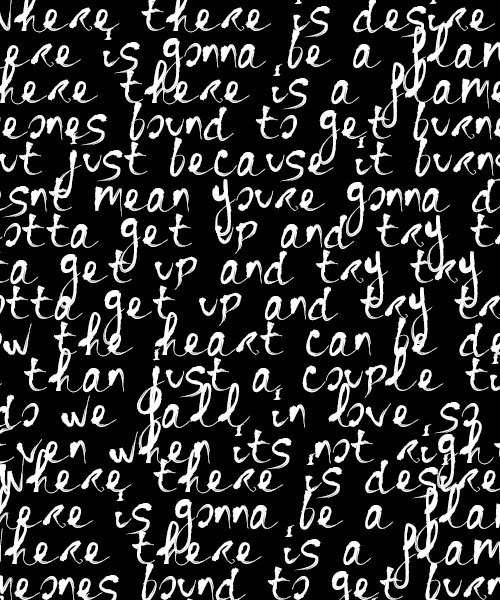 where there is desire
here is gonna be a flam
here there is a flame
eones bound to get burne
ut just because it burn
snt mean youre gonna d
otta get up and try t
ta get up and try try
otta get up and try tr
ow the heart can be de
than just a couple ti
do we fall in love so
even when its not right
where there is desire
here is gonna be a flam
here there is a flam
meones bound to get burn